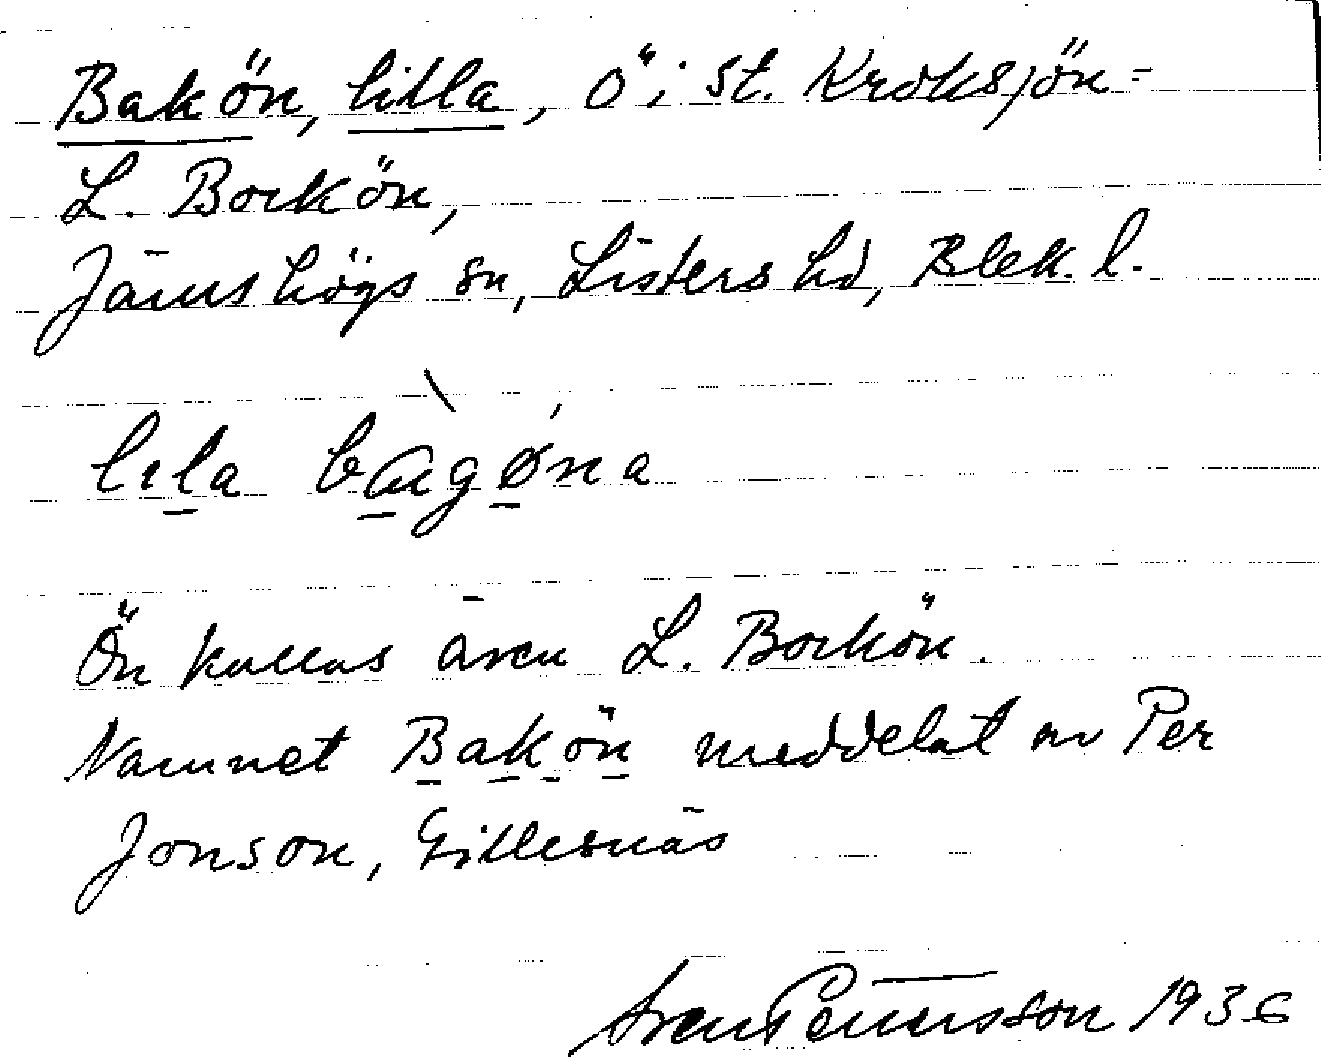 Bakön, lilla, ö i St. Kroksjön =
L. Borkön,
Jämshögs sn, Listers hd, Blek. l.
lila bàgøna
Ön kallas även L. Borkön.
Namnet Bakön meddelat av Per
Jonson, Gillesnäs
Sven Pettersson 1936